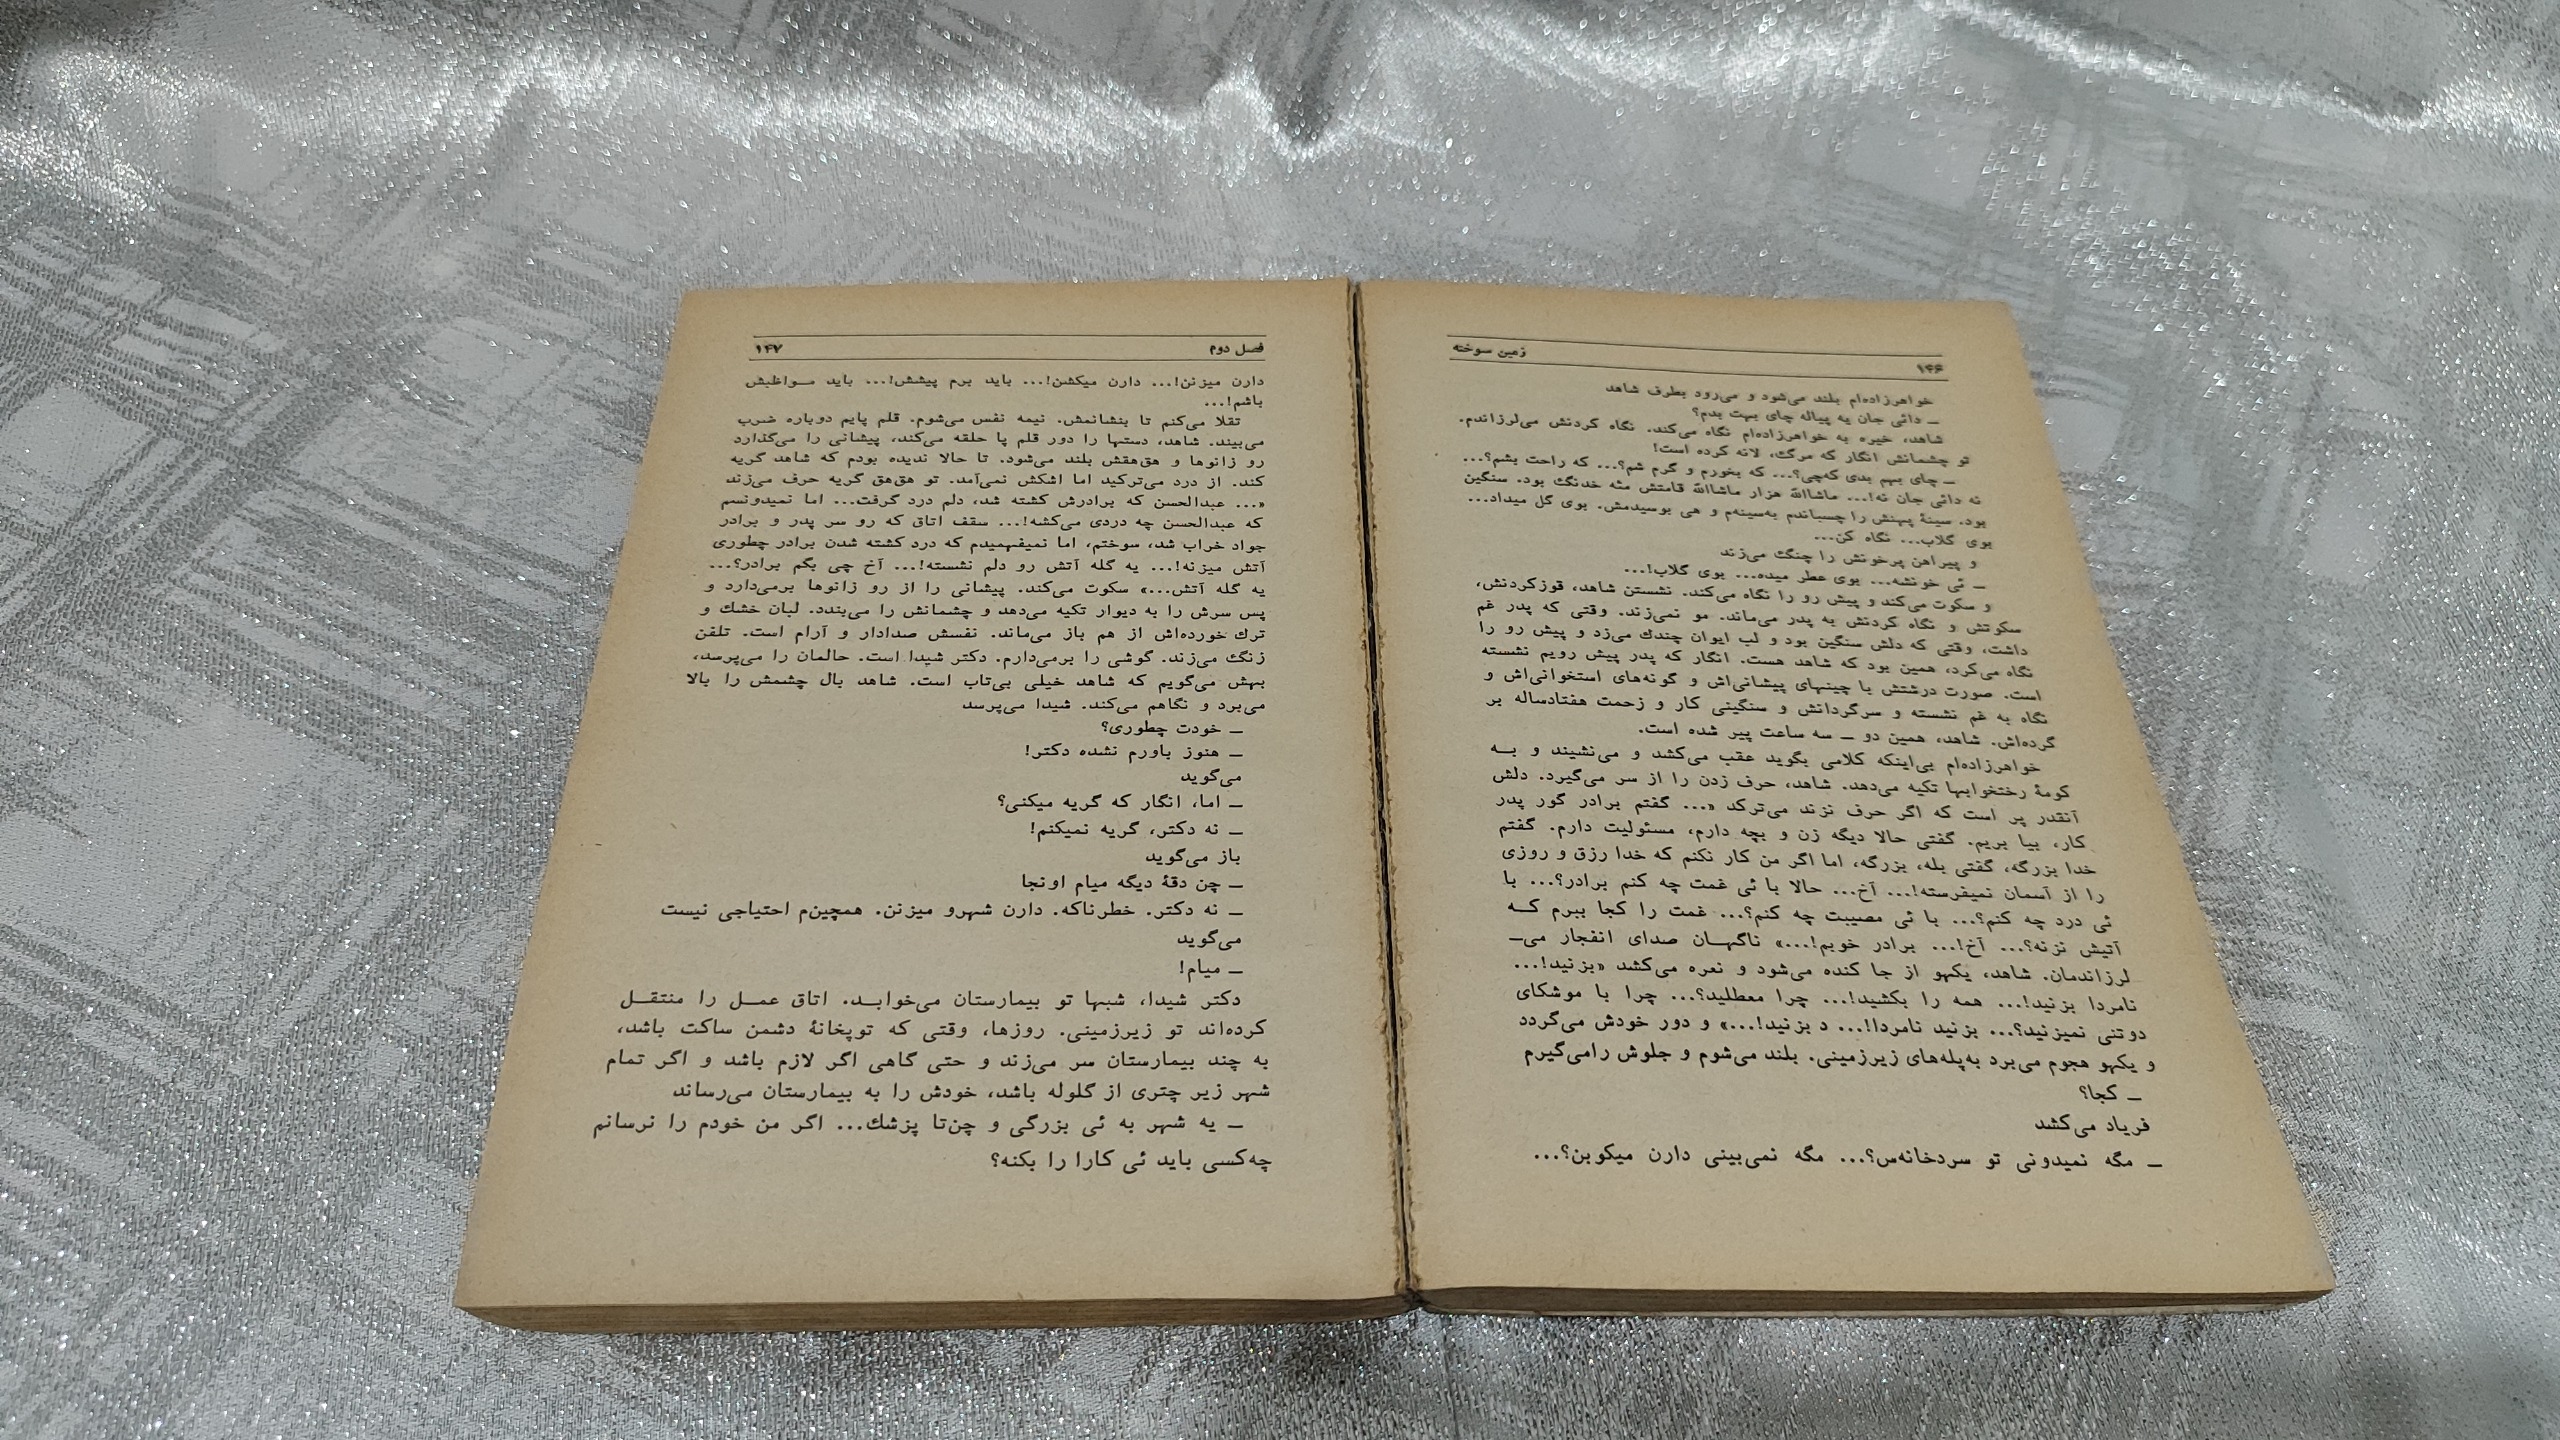 ۱۴۶
زمین سوخته
خواهرزاده‌ام بلند می‌شود و می‌رود بطرف شاهد
ــ دائی جان یه پیاله چای بهت بدم؟
شاهد، خیره به خواهرزاده‌ام نگاه می‌کند. نگاه کردنش می‌لرزاندم.
تو چشمانش انگار که مرگ، لانه کرده است!
ــ چای بهم بدی که‌چی؟... که بخورم و گرم شم؟... که راحت بشم؟...
نه دائی جان نه!... ماشاالله هزار ماشاالله قامتش مثه خدنگ بود. سنگین
بود. سینهٔ پهنش را چسباندم به‌سینه‌م و هی بوسیدمش. بوی گل میداد...
بوی گلاب... نگاه کن...
و پیراهن پرخونش را چنگ می‌زند
ــ ئی خونشه... بوی عطر میده... بوی گلاب!...
و سکوت می‌کند و پیش رو را نگاه می‌کند. نشستن شاهد، قوزکردنش،
سکوتش و نگاه کردنش به پدر می‌ماند. مو نمی‌زند. وقتی که پدر غم
داشت، وقتی که دلش سنگین بود و لب ایوان چندك می‌زد و پیش رو را
نگاه می‌کرد، همین بود که شاهد هست. انگار که پدر پیش رویم نشسته
است. صورت درشتش با چینهای پیشانی‌اش و گونه‌های استخوانی‌اش و
نگاه به غم نشسته و سرگردانش و سنگینی کار و زحمت هفتادساله بر
گرده‌اش. شاهد، همین دو ــ سه ساعت پیر شده است.
خواهرزاده‌ام بی‌اینکه کلامی بگوید عقب می‌کشد و می‌نشیند و بــه
کومهٔ رختخوابها تکیه می‌دهد. شاهد، حرف زدن را از سر می‌گیرد. دلش
آنقدر پر است که اگر حرف نزند می‌ترکد «... گفتم برادر گور پدر
کار، بیا بریم. گفتی حالا دیگه زن و بچه دارم، مسئولیت دارم. گفتم
خدا بزرگه، گفتی بله، بزرگه، اما اگر من کار نکنم که خدا رزق و روزی
را از آسمان نمیفرسته!... آخ... حالا با ئی غمت چه کنم برادر؟... با
ئی درد چه کنم؟... با ئی مصیبت چه کنم؟... غمت را کجا ببرم کــه
آتیش نزنه؟... آخ!... برادر خوبم!...» ناگهــان صدای انفجار می‌ــ
لرزاندمان. شاهد، یکهو از جا کنده می‌شود و نعره می‌کشد «بزنید!...
نامردا بزنید!... همه را بکشید!... چرا معطلید؟... چرا با موشکای
دوتنی نمیزنید؟... بزنید نامردا!... د بزنید!...» و دور خودش می‌گردد
و یکهو هجوم می‌برد به‌پله‌های زیرزمینی. بلند می‌شوم و جلوش رامی‌گیرم
ــ کجا؟
فریاد می‌کشد
ــ مگه نمیدونی تو سردخانه‌س؟... مگه نمی‌بینی دارن میکوبن؟...
فصل دوم
۱۴۷
دارن میزنن!... دارن میکشن!... باید برم پیشش!... باید مــواظبش
باشم!...
تقلا می‌کنم تا بنشانمش. نیمه نفس می‌شوم. قلم پایم دوباره ضرب
می‌بیند. شاهد، دستها را دور قلم پا حلقه می‌کند، پیشانی را می‌گذارد
رو زانوها و هق‌هقش بلند می‌شود. تا حالا ندیده بودم که شاهد گریه
کند. از درد می‌ترکید اما اشکش نمی‌آمد. تو هق‌هق گریه حرف می‌زند
«... عبدالحسن که برادرش کشته شد، دلم درد گرفت... اما نمیدونسم
که عبدالحسن چه دردی می‌کشه!... سقف اتاق که رو سر پدر و برادر
جواد خراب شد، سوختم، اما نمیفهمیدم که درد کشته شدن برادر چطوری
آتش میزنه!... یه گله آتش رو دلم نشسته!... آخ چی بگم برادر؟...
یه گله آتش...» سکوت می‌کند. پیشانی را از رو زانوها برمی‌دارد و
پس سرش را به دیوار تکیه می‌دهد و چشمانش را می‌بندد. لبان خشك و
ترك خورده‌اش از هم باز می‌ماند. نفسش صدادار و آرام است. تلفن
زنگ می‌زند. گوشی را برمی‌دارم. دکتر شیدا است. حالمان را می‌پرسد،
بهش می‌گویم که شاهد خیلی بی‌تاب است. شاهد بال چشمش را بالا
می‌برد و نگاهم می‌کند. شیدا می‌پرسد
ــ خودت چطوری؟
ــ هنوز باورم نشده دکتر!
می‌گوید
ــ اما، انگار که گریه میکنی؟
ــ نه دکتر، گریه نمیکنم!
باز می‌گوید
ــ چن دقهٔ دیگه میام اونجا
ــ نه دکتر. خطرناکه. دارن شهرو میزنن. همچینم احتیاجی نیست
می‌گوید
ــ میام!
دکتر شیدا، شبها تو بیمارستان می‌خوابــد. اتاق عمــل را منتقــل
کرده‌اند تو زیرزمینی. روزها، وقتی که توپخانهٔ دشمن ساکت باشد،
به چند بیمارستان سر می‌زند و حتی گاهی اگر لازم باشد و اگر تمام
شهر زیر چتری از گلوله باشد، خودش را به بیمارستان می‌رساند
ــ یه شهر به ئی بزرگی و چن‌تا پزشك... اگر من خودم را نرسانم
چه‌کسی باید ئی کارا را بکنه؟